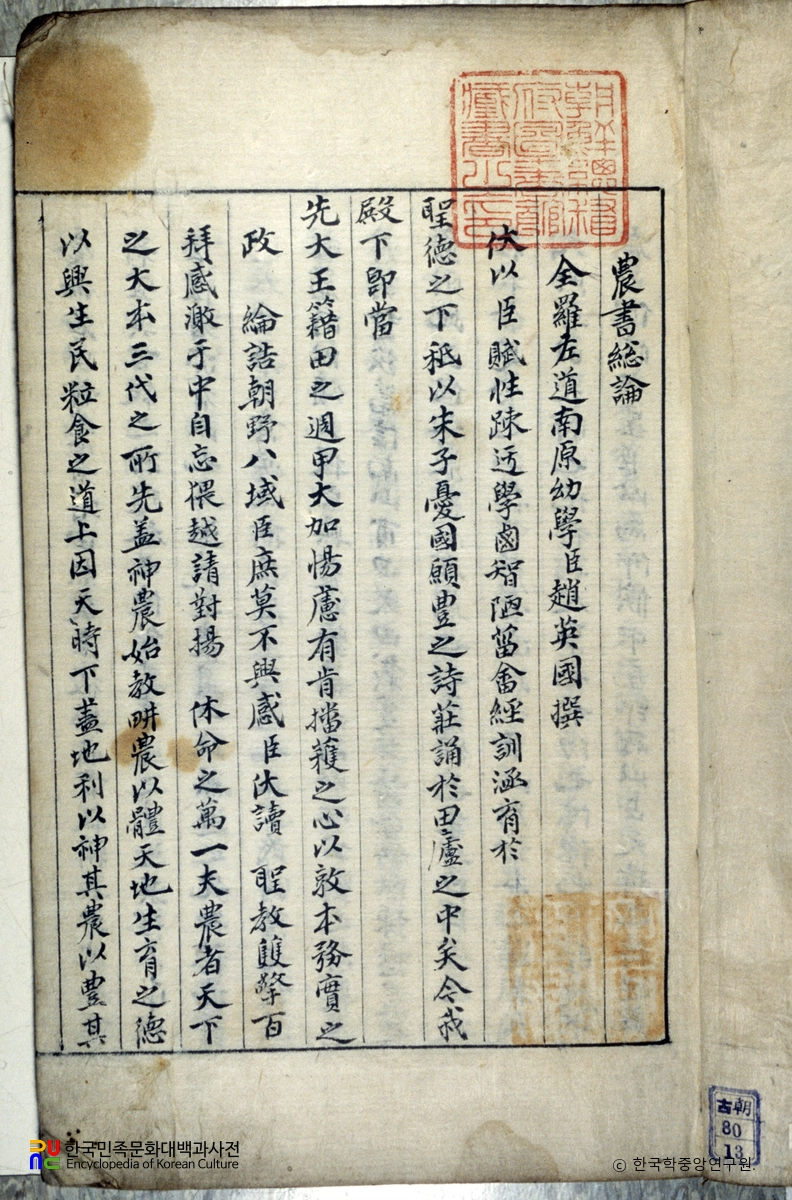 農書総論
全羅左道南原幼學臣趙英國撰
伏以臣賦性踈迃學鹵智陋菑畬經訓涵育於
聖德之下秖以朱子憂國願豊之詩莊誦於田廬之中矣今我
殿下卽當
先大王籍田之週甲大加惕慮有肯播穫之心以敦本務實之
政 綸誥朝野八域臣庶莫不興感臣伏讀 聖教雙擎百
拜感激于中自忘猥越請對揚 休命之萬一夫農者天下
之大本三代之所先盖神農始教畊農以體天地生育之德
以興生民粒食之道上因天時下盡地利以神其農以豊其
朝鮮總督
府圖書館
藏書之印
古朝
80
13
한국민족문화대백과사전
Encyclopedia of Korean Culture
© 한국학중앙연구원